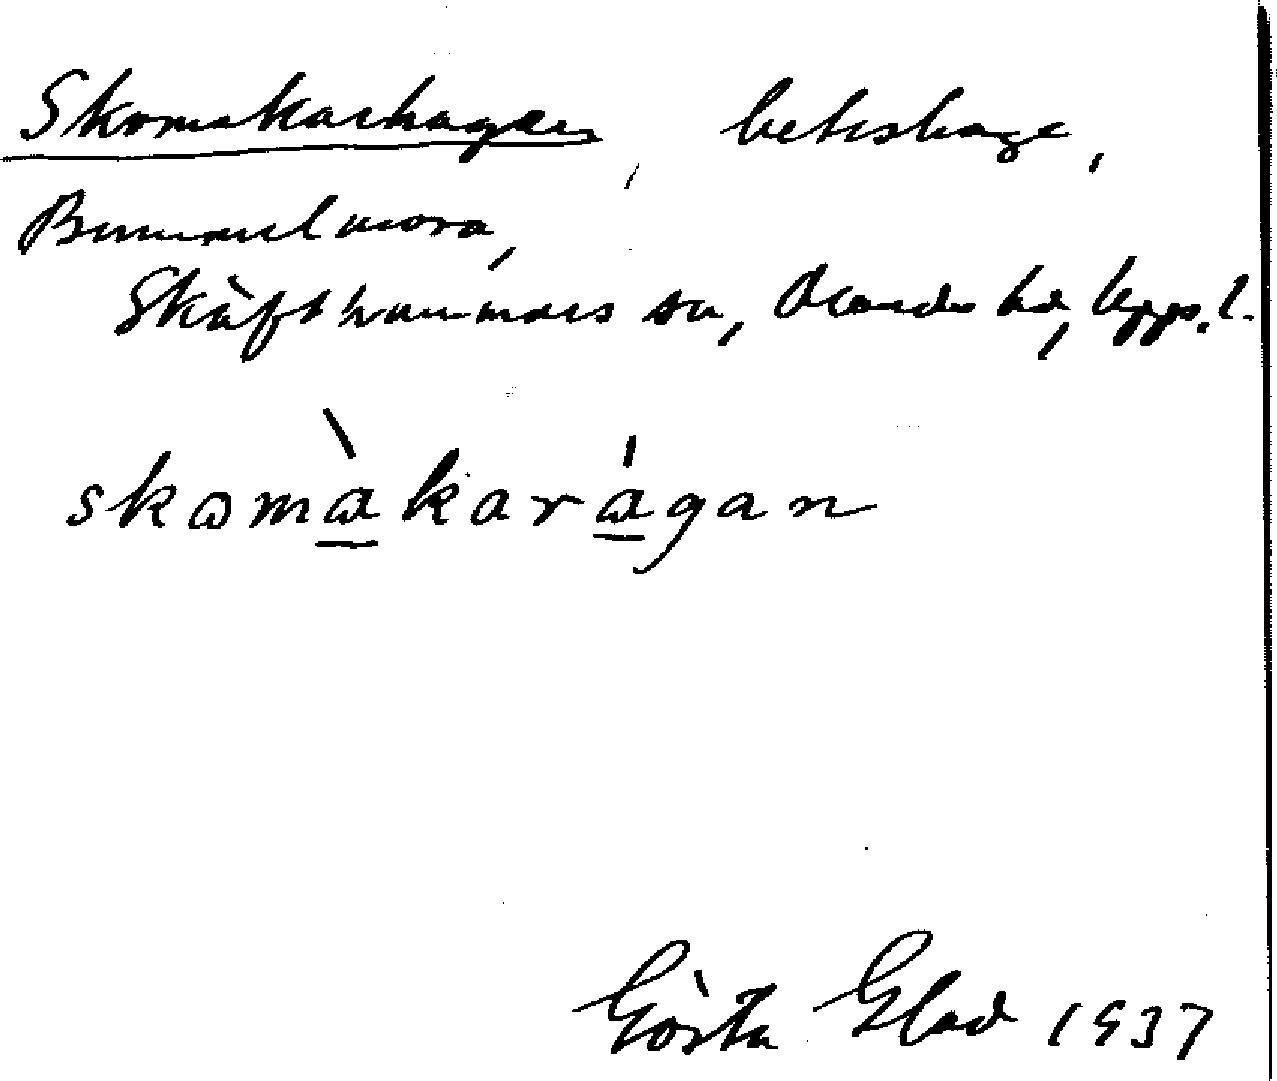 Skomakarhagen, beteshage,
Bummelmora,
Skäfthammars sn, Olands hd, Upps. l.
skomàkarágan
Gösta Glad 1937